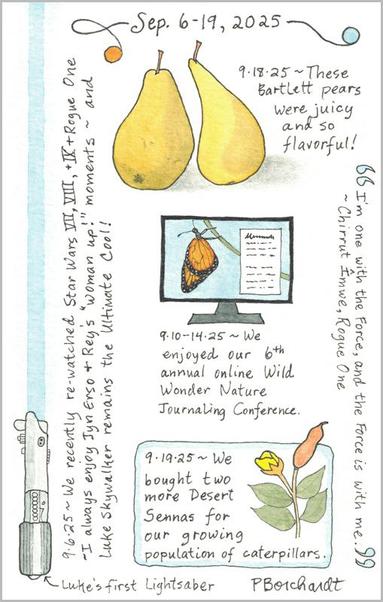 Sep. 6-19, 2025
9.18.25 ~ These
Bartlett pears
were juicy
and so
flavorful!
9.6.25 ~ We recently re-watched Star Wars VII, VIII, + IX + Rogue One
~ I always enjoy Jyn Erso + Rey's "Woman up!" moments ~ and
Luke Skywalker remains the Ultimate Cool!
"I'm one with the Force, and the Force is with me."
~ Chirrut Imwe, Rogue One
9.10-14.25 ~ We
enjoyed our 6th
annual online Wild
Wonder Nature
Journaling Conference.
9.19.25 ~ We
bought two
more Desert
Sennas for
our growing
population of caterpillars.
Luke's first Lightsaber
PBorchardt